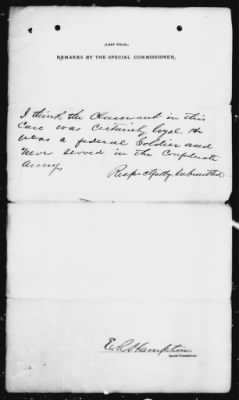 (LAST PAGE.)
REMARKS BY THE SPECIAL COMMISSIONER.
I think the Claimant in this
case was certainly loyal. He
was a federal Soldier and
never served in the Confederate
army.
Respectfully submitted
Hampton
Special Commissioner.